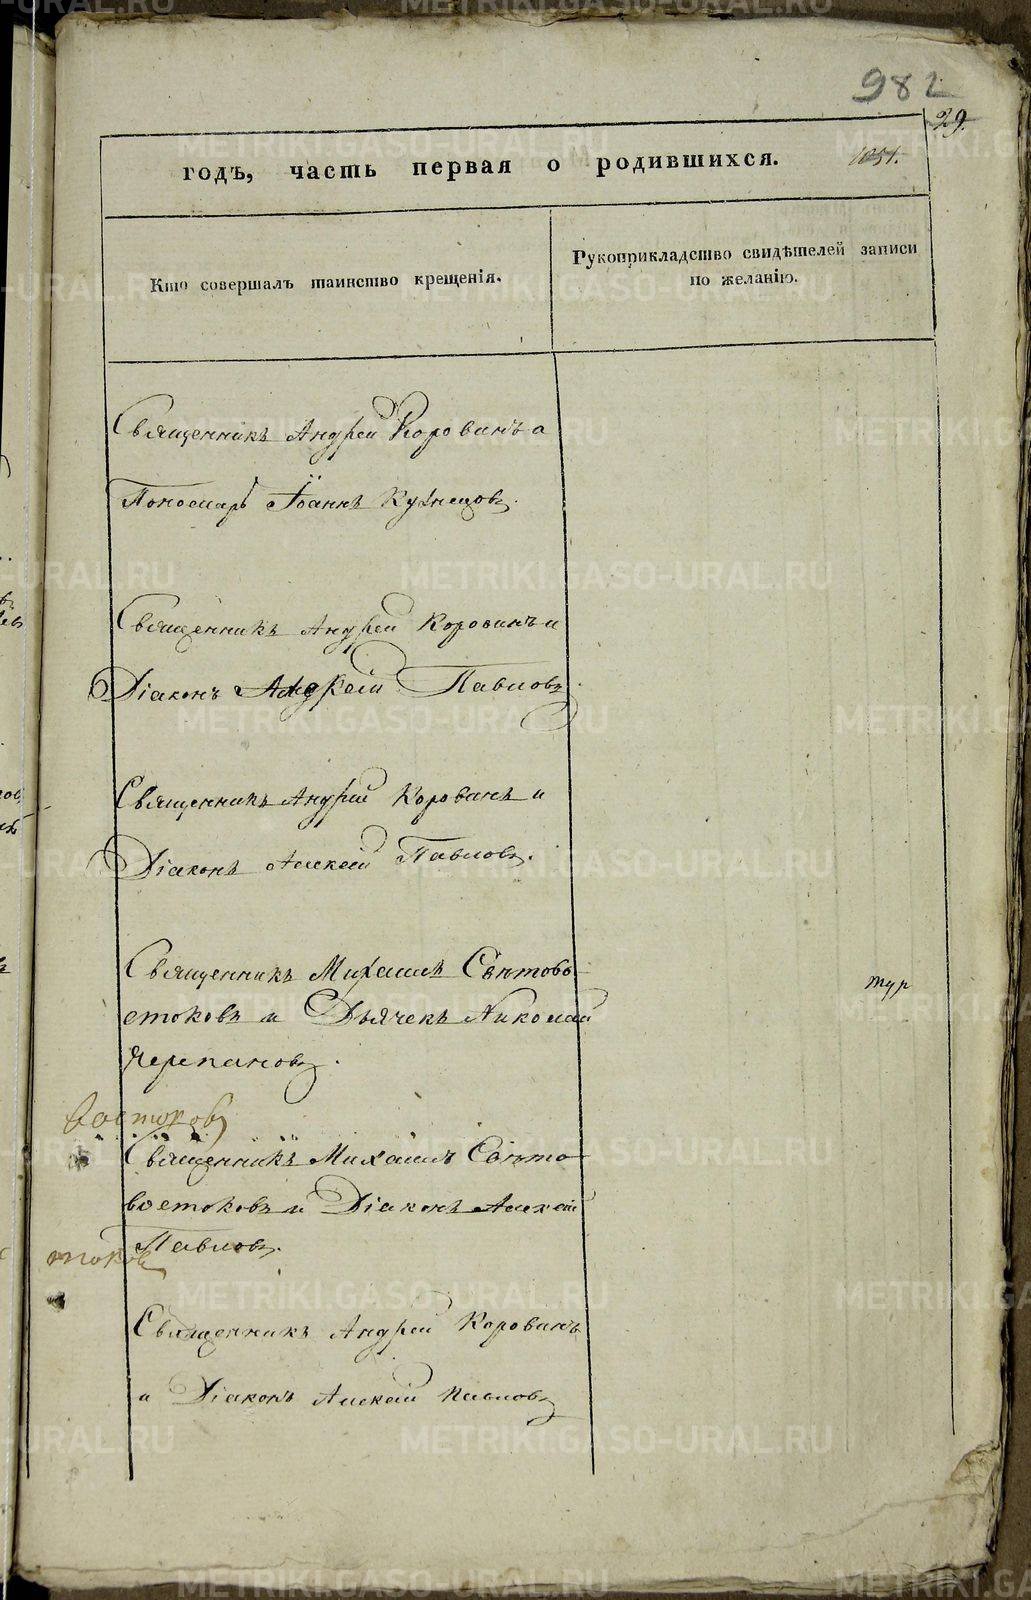 982
29.
годъ, часть первая о родившихся. 1051.
Кто совершалъ таинство крещенія.
Рукоприкладство свидѣтелей записи
по желанію.
Священникъ Андрей Коровинъ а
Пономарь Іоаннъ Кузнецовъ.
Священникъ Андрей Коровинъ и
Діаконъ Алексѣй Павловъ.
Священникъ Андрей Коровинъ и
Діаконъ Алексѣй Павловъ.
Священникъ Михаилъ Свѣтово-
стоковъ и Дьячекъ Николай
Черепановъ.
Священникъ Михаилъ Свѣто-
востоковъ и Діаконъ Алексѣй
Павловъ.
Священникъ Андрей Коровинъ
и Діаконъ Алексѣй Павловъ
METRIKI.GASO-URAL.RU